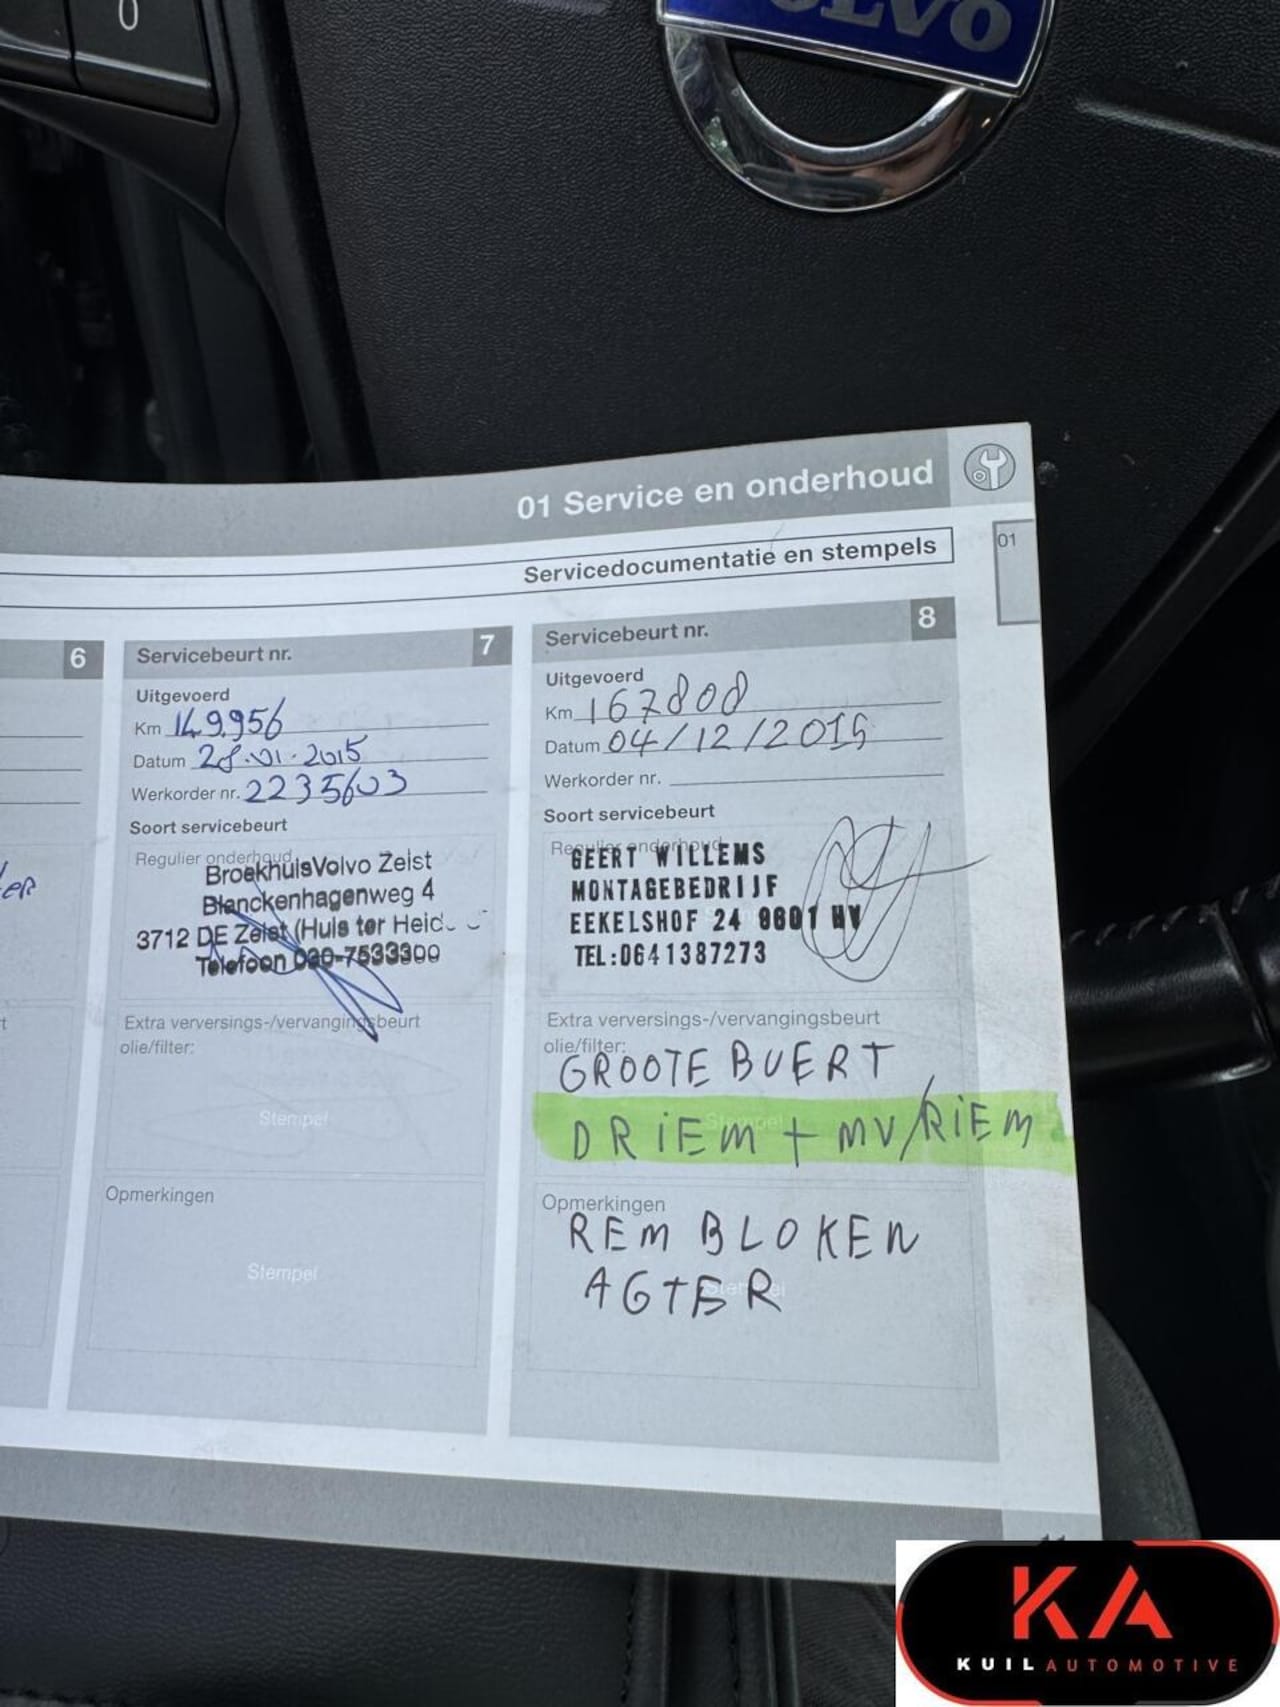 0
VOLVO
01 Service en onderhoud
01
Servicedocumentatie en stempels
6
Servicebeurt nr. 7
Uitgevoerd
Km 149.956
Datum 28.01.2015
Werkorder nr. 2235603
Soort servicebeurt
Regulier onderhoud
Broekhuis Volvo Zeist
Blanckenhagenweg 4
3712 DE Zeist (Huis ter Heide
Telefoon 030-7533300
Extra verversings-/vervangingsbeurt
olie/filter:
Stempel
Opmerkingen
Stempel
Servicebeurt nr. 8
Uitgevoerd
Km 167808
Datum 04/12/2015
Werkorder nr.
Soort servicebeurt
Regulier onderhoud
GEERT WILLEMS
MONTAGEBEDRIJF
EEKELSHOF 24 9601 HV
TEL:0641387273
Extra verversings-/vervangingsbeurt
olie/filter:
GROOTE BUERT
DRiEM + MV/RiEM
Stempel
Opmerkingen
REM BLOKEN
AGTER
Stempel
KA
KUIL AUTOMOTIVE